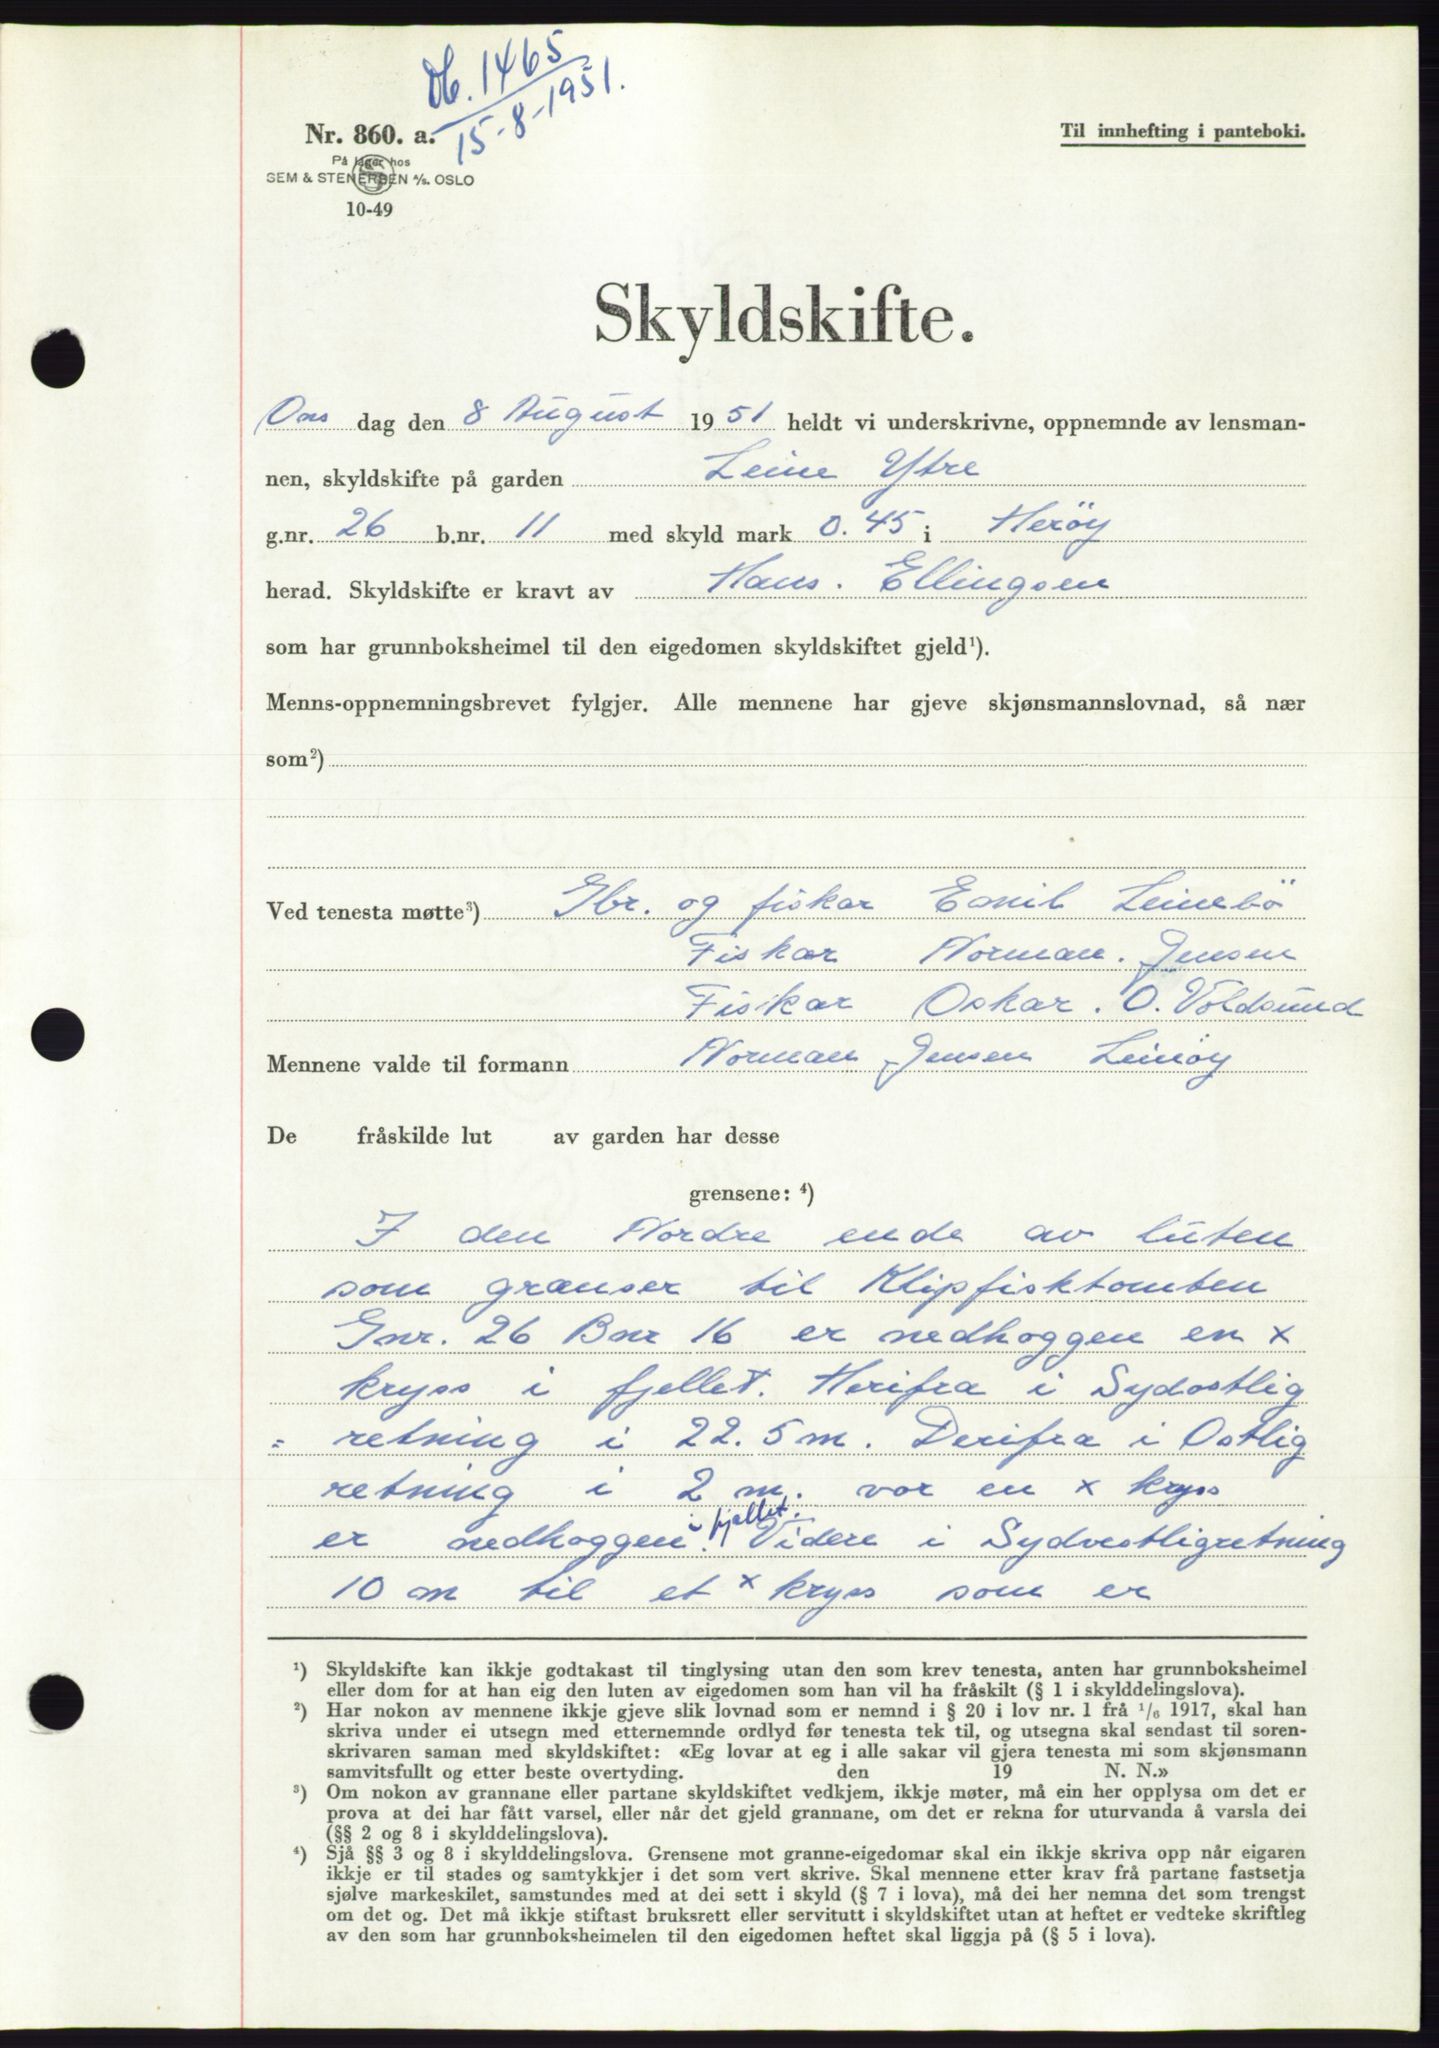 Db. 1465
15-8-1951.
Nr. 860. a.
Til innhefting i panteboki.
På lager hos
SEM & STENERSEN A/S. OSLO
10-49
Skyldskifte.
Ons dag den 8 August 1951 heldt vi underskrivne, oppnemnde av lensman-
nen, skyldskifte på garden Leine Ytre
g.nr. 26 b.nr. 11 med skyld mark 0.45 i Herøy
herad. Skyldskifte er kravt av Hans. Ellingsen
som har grunnboksheimel til den eigedomen skyldskiftet gjeld¹).
Menns-oppnemningsbrevet fylgjer. Alle mennene har gjeve skjønsmannslovnad, så nær
som²)
Ved tenesta møtte³) Gbr. og fiskar Emil Leinebö
Fiskar Norman. Jensen
Fiskar Oskar. O. Voldsund
Mennene valde til formann Norman Jensen Leinøy
De fråskilde lut av garden har desse
grensene: ⁴)
I den Nordre ende av luten
som grenser til Klipfisktomten
Gnr. 26 Bnr 16 er nedhoggen en x
kryss i fjellet. Herifra i Sydostlig
= retning i 22.5 m. Derifra i Ostlig
retning i 2 m. vor en x kryss
er nedhoggen i fjellet. Videre i Sydvestligretning
10 m til et x kryss som er
¹) Skyldskifte kan ikkje godtakast til tinglysing utan den som krev tenesta, anten har grunnboksheimel
eller dom for at han eig den luten av eigedomen som han vil ha fråskilt (§ 1 i skylddelingslova).
²) Har nokon av mennene ikkje gjeve slik lovnad som er nemnd i § 20 i lov nr. 1 frå ¹/₆ 1917, skal han
skriva under ei utsegn med etternemnde ordlyd før tenesta tek til, og utsegna skal sendast til soren-
skrivaren saman med skyldskiftet: «Eg lovar at eg i alle sakar vil gjera tenesta mi som skjønsmann
samvitsfullt og etter beste overtyding. den 19 N. N.»
³) Om nokon av grannane eller partane skyldskiftet vedkjem, ikkje møter, må ein her opplysa om det er
prova at dei har fått varsel, eller når det gjeld grannane, om det er rekna for uturvanda å varsla dei
(§§ 2 og 8 i skylddelingslova).
⁴) Sjå §§ 3 og 8 i skylddelingslova. Grensene mot granne-eigedomar skal ein ikkje skriva opp når eigaren
ikkje er til stades og samtykkjer i det som vert skrive. Skal mennene etter krav frå partane fastsetja
sjølve markeskilet, samstundes med at dei sett i skyld (§ 7 i lova), må dei her nemna det som trengst
om det og. Det må ikkje stiftast bruksrett eller servitutt i skyldskiftet utan at heftet er vedteke skriftleg
av den som har grunnboksheimelen til den eigedomen heftet skal liggja på (§ 5 i lova).